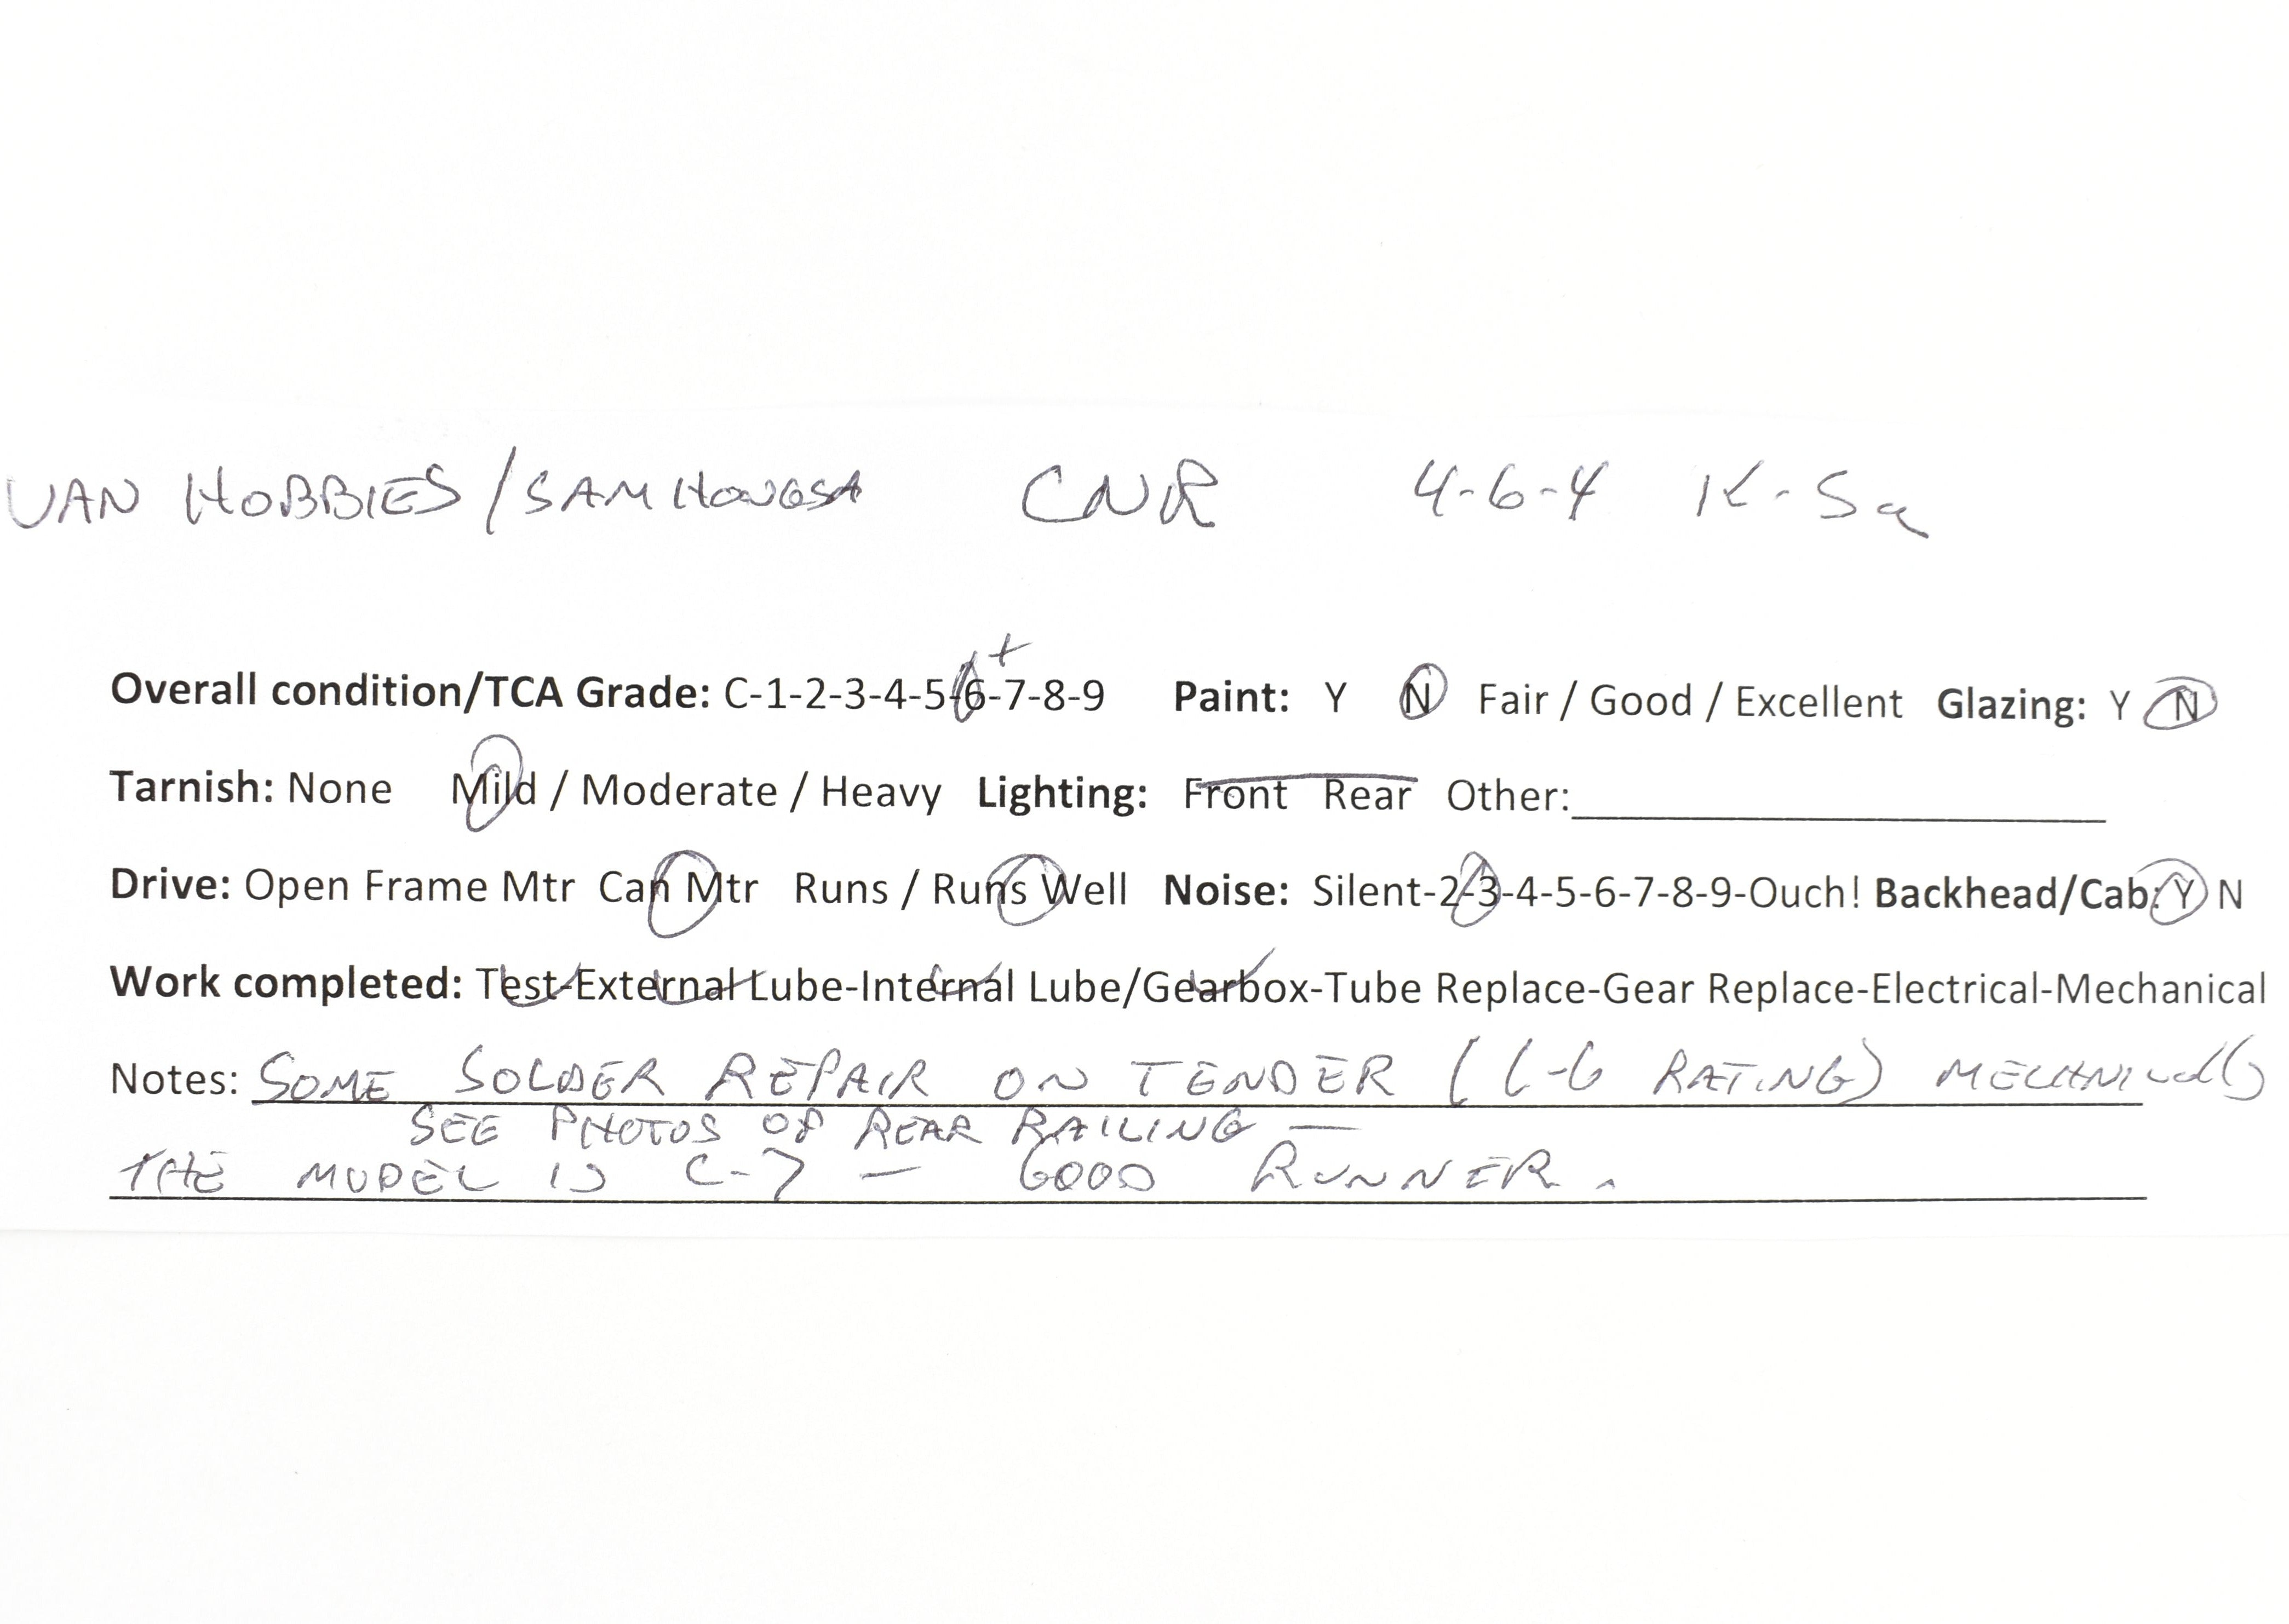 VAN HOBBIES / SAMHONGSA CNR 4-6-4 K-5a
Overall condition/TCA Grade: C-1-2-3-4-5-6-7-8-9 + Paint: Y N Fair / Good / Excellent Glazing: Y N
Tarnish: None Mild / Moderate / Heavy Lighting: Front Rear Other:
Drive: Open Frame Mtr Can Mtr Runs / Runs Well Noise: Silent-2-3-4-5-6-7-8-9-Ouch! Backhead/Cab: Y N
Work completed: Test-External Lube-Internal Lube/Gearbox-Tube Replace-Gear Replace-Electrical-Mechanical
Notes: SOME SOLDER REPAIR ON TENDER (C-6 RATING) MECHANICALLY
SEE PHOTOS OF REAR RAILING —
THE MODEL IS C-7 — GOOD RUNNER.